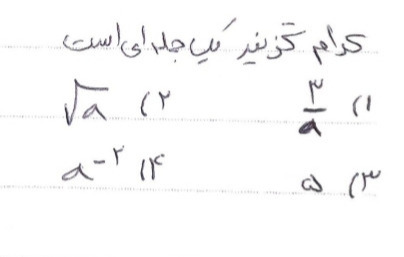 کدام گزینه یک جمله‌ای است
۱) ۳/a ۲) √a
۳) ۵ ۴) a⁻²